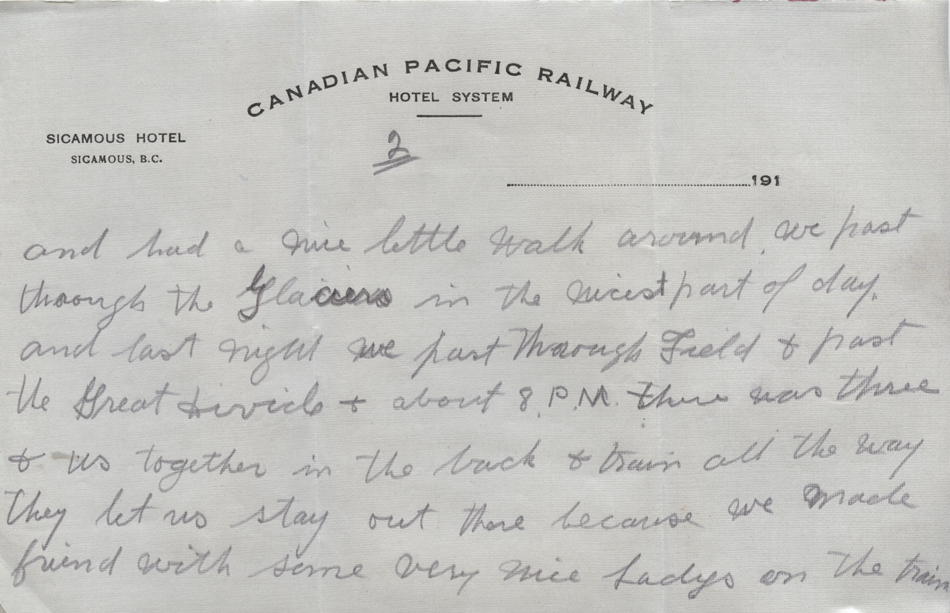 CANADIAN PACIFIC RAILWAY
HOTEL SYSTEM
SICAMOUS HOTEL
SICAMOUS, B.C.
2
191
and had a nice little walk around, we past
through the Glaciers in the nicest part of day.
and last night we past through Field & past
the Great Divide & about 8. P.M. there was three
& us together in the back & train all the way
They let us stay out there because we made
friend with some very nice Ladys on the train